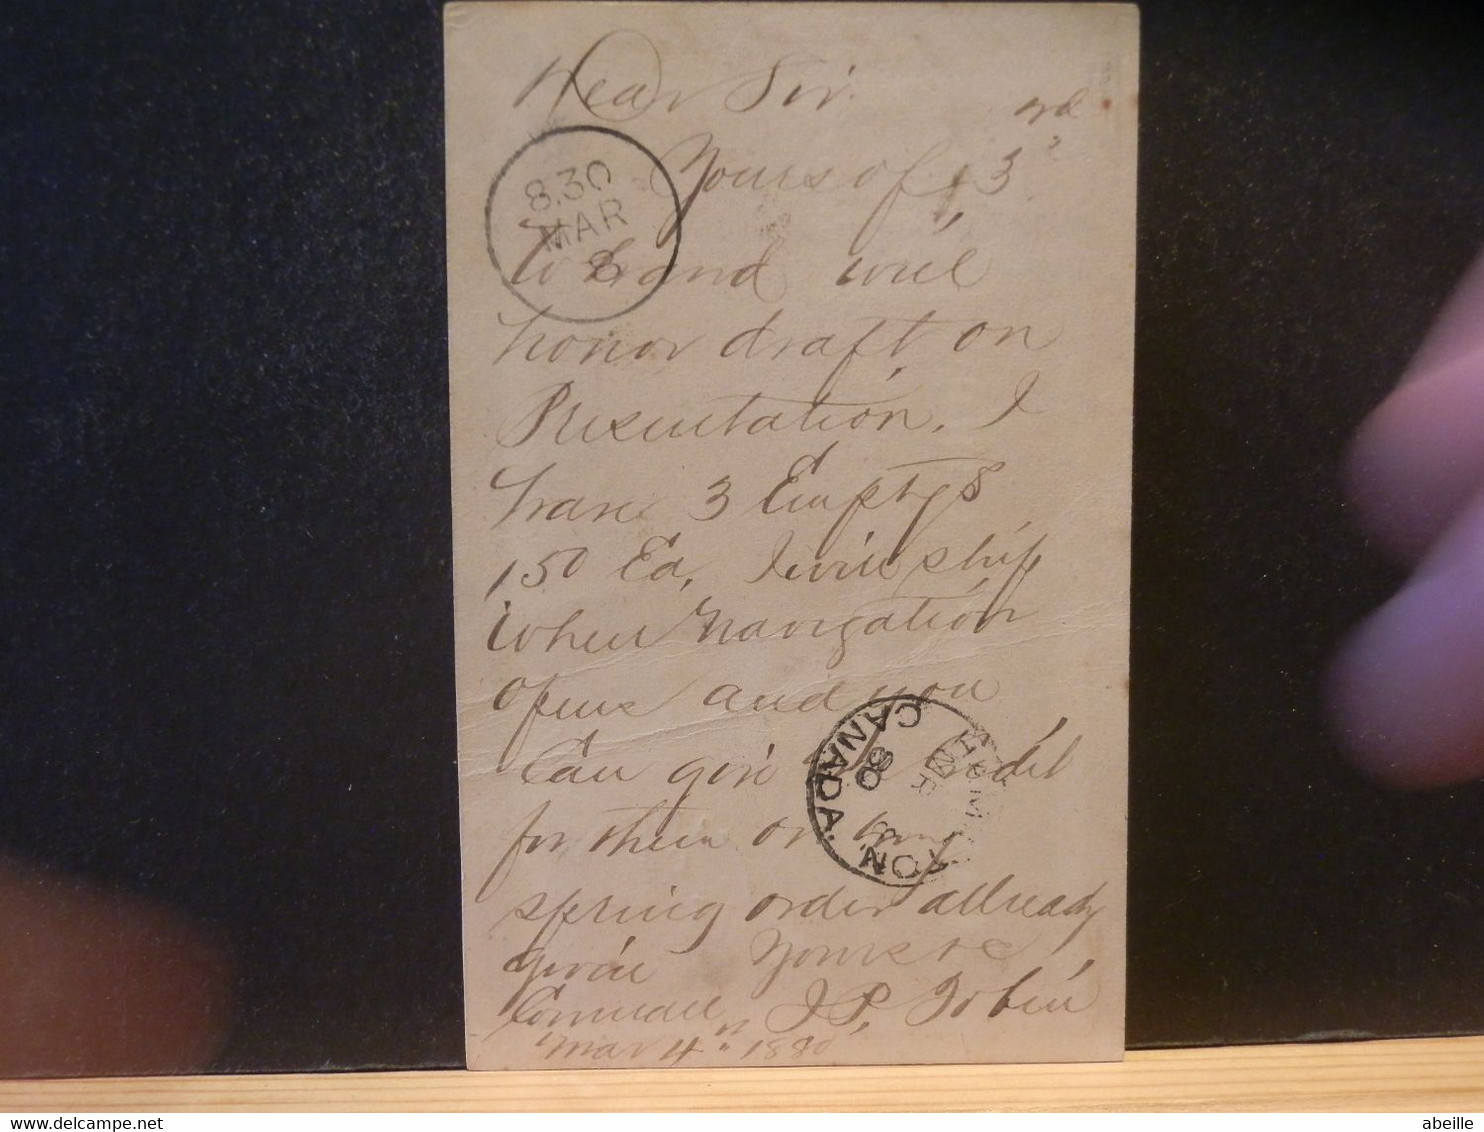 Dear Sir.
Yours of 3rd
to hand will
honor draft on
Presentation, I
have 3 Emptys
150 Ea, I will ship
when Navigation
opens and you
Can give
for them on my
spring order allready
given Yours &c,
Cornwall J P. Tobin
Mar 4th 1880
8.30
MAR
8
CANADA.
80